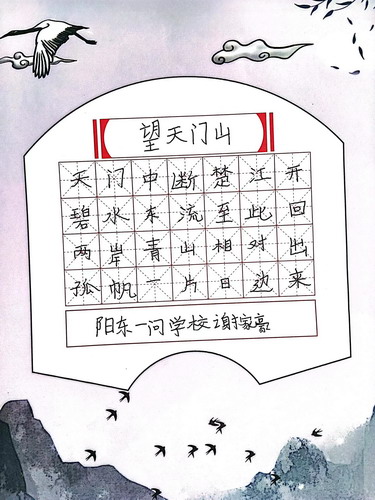 望天门山
天门中断楚江开
碧水东流至此回
两岸青山相对出
孤帆一片日边来
阳东一问学校谢家高